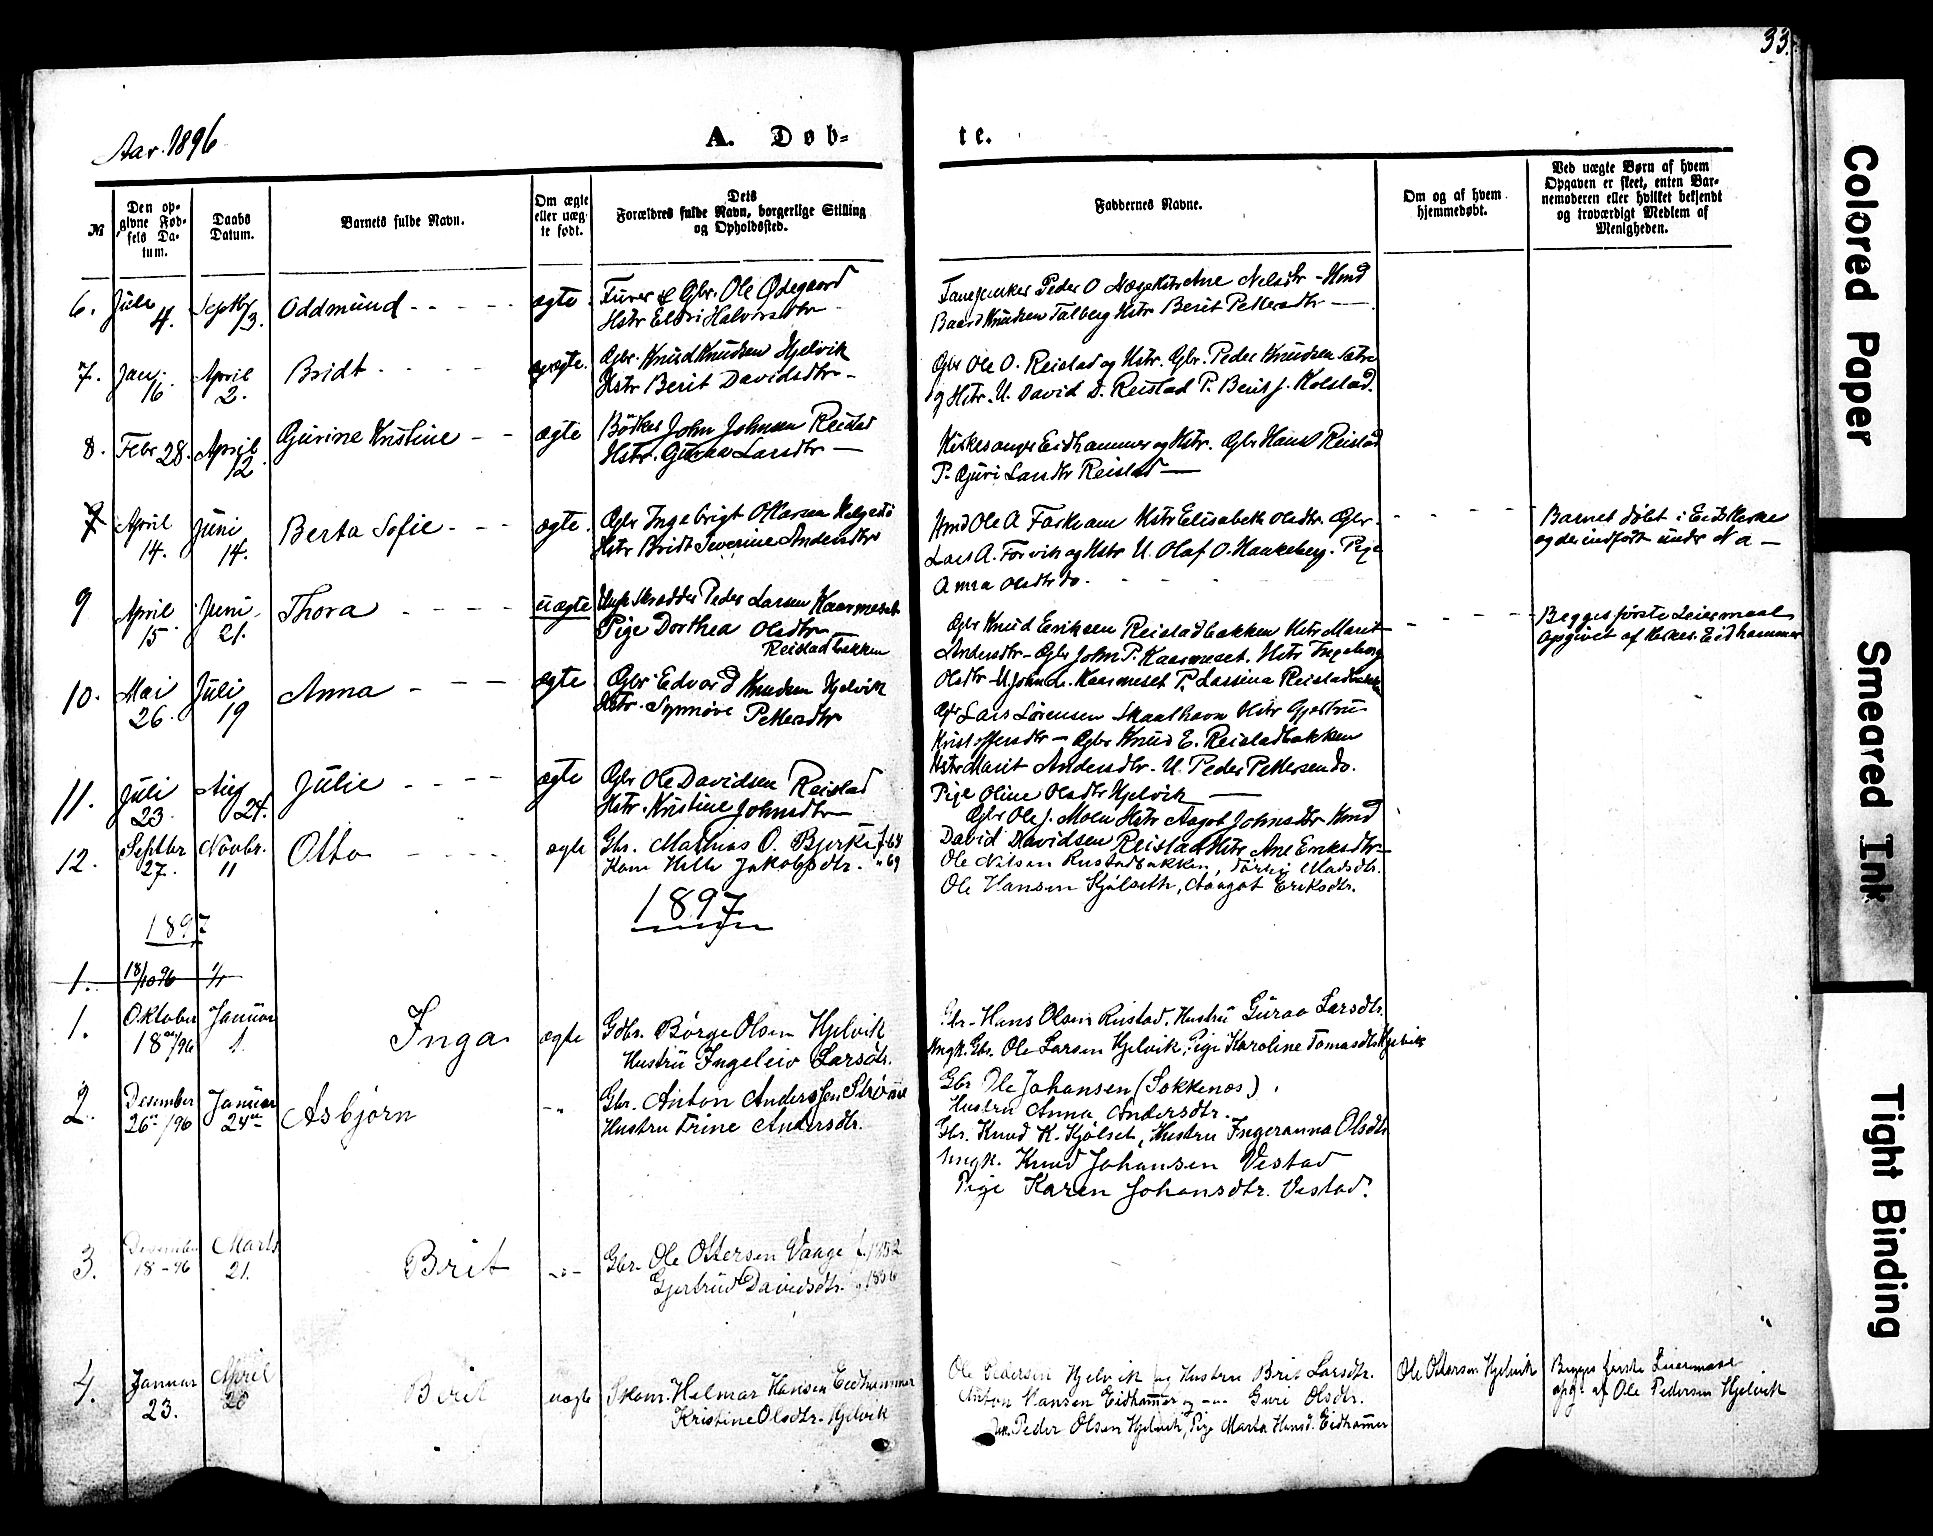 33.
Aar 1896
A. Døb=
te.
№
Den op-
givne Fød-
sels Da-
tum.
Daabs
Datum.
Barnets fulde Navn.
Om ægte
eller uæg-
te født.
Dets
Forældres fulde Navn, borgerlige Stilling
og Opholdssted.
Faddernes Navne.
Om og af hvem
hjemmedøbt.
Ved uægte Børn af hvem
Opgaven er skeet, enten Bar-
nemoderen eller hvilket bekjendt
og troværdigt Medlem af
Menigheden.
6. Juli 4. Septbr 13. Oddmund - - - - ægte.
Furer & Gbr. Ole Ødegaard
Hstr Eldri Halvorsdtr
Peder O Ane Nelsdtr - Hmd
Baard Knudsen Talberg Hstr Berit Pettersdtr —
7. Jan. 16. April 2. Bridt - - - - ægte.
Gbr. Knud Knudsen Hjelvik
Hstr Berit Davidsdtr -
Gbr Ole O. Reistad og Hstr. Gbr. Peder Knudsen Sætre
og Hstr. U. David D. Reistad P. Berit J. Kolstad.
8. Febr 28. April 12. Gjurine Kristine - - ægte
Bödker John Johnsen Reistad
Hstr. Guraa Larsdtr —
Kirkesanger Eidhammer og Hstr. Gbr Hans Reistad
P. Gjuri Larsdtr Reistad —
April 14. Juni 14. Berta Sofie - - - ægte.
Gbr Ingebrigt Ottarsen
Hstr Bridt Severine Andersdtr
Hmd Ole A Hstr Elisabeth Olsdtr. Gbr.
Lars A. Torvik og Hstr U. Olaf O. Haukeberg. Pige
Anna Olsdtr do.
Barnet døbt i Eids Kirke
og der indført under N a —
9 April 15. Juni 21. Thora - - - - uægte
Ungk Skrædder Peder Larsen Kaarmeset
Pige Dorthea Olsdtr
Reistadbakken
Gbr Knud Eriksen Reistadbakken Hstr Marit
Andersdtr - Gbr John P. Kaarmeset. Hstr Ingeborg
Olsdtr - U. John L. Kaarmeset P. Lassina Reistadbakken
Begges første Leiermaal
opgivet af Kirkes. Eidhammer
10. Mai 26. Juli 19 Anna - - - ægte
Gbr. Edvard Knudsen Hjelvik
Hstr. Synnöve Pettersdtr
Gbr Lars Sørensen Skaalhavn Hstr Gjertru
Kristoffersdtr - Gbr Knud E. Reistadbakken
Hstr Marit Andersdtr. U. Peder Pettersen do.
Pige Oline Olsdtr Hjelvik —
11. Juli 23. Aug 24. Julie - - - - ægte
Gbr Ole Davidsen Reistad
Hstr. Kristine Johnsdtr —
Gbr Ole J. Moen Hstr Aagot Johnsdtr Hmd
David Davidsen Reistad Hstr Ane Eriksdtr -
12. Septbr 27. Novbr. 11 Otto - - - - ægte
Gbr. Mathias O. Bjerke f. 64
Kone Hille Jakobsdtr. " 69
Ole Nilsen Rustadbakken, Madsdtr.
Ole Hansen Kjölseth, Aagot Eriksdtr.
1897
1897
1. 18/10 96 1/1
1. Oktober 18de/96 Januar 1. Inga ægte
Gbr. Børge Olsen Hjelvik
Hustru Ingeleiv Larsdtr.
Gbr. Hans Olsen Rustad, Hustru Guraa Larsdtr.
Ungk. Gbr. Ole Larsen Hjelvik, Pige Karoline Tomasdtr Hjelvik
2. Desember 26de/96 Januar 24de Asbjørn -"-
Gbr. Anton Anderssen Strømme
Hustru Trine Andersdtr.
Gbr Ole Johansen (Sokkenæs).
Hustru Anna Andersdtr.
Gbr. Knud K. Kjölset, Hustru Ingeranna Olsdtr
Ungk. Knud Johansen Vestad
Pige Karen Johansdtr. Vestad.
3. Desember 18 - 96 Marts 21. Brit -"-
Gbr. Ole Ottersen Vaage f. 1852
Gjertrud Davidsdtr. " 1856
4. Januar 23. April 20 Brit uægte
Hilmar Hansen Eidhammer
Kristine Olsdtr. Hjelvik
Ole Pedersen Hjelvik og Hustru Brit Larsdtr.
Anton Hansen Eidhammer og -"- Guri Olsdtr.
Peder Olsen Hjelvik, Pige Marta Hansd. Eidhammer
Ole Ottersen Hjelvik
Begges første Leiermaal
opg. af Ole Pedersen Hjelvik
Colored Paper
Smeared Ink
Tight Binding